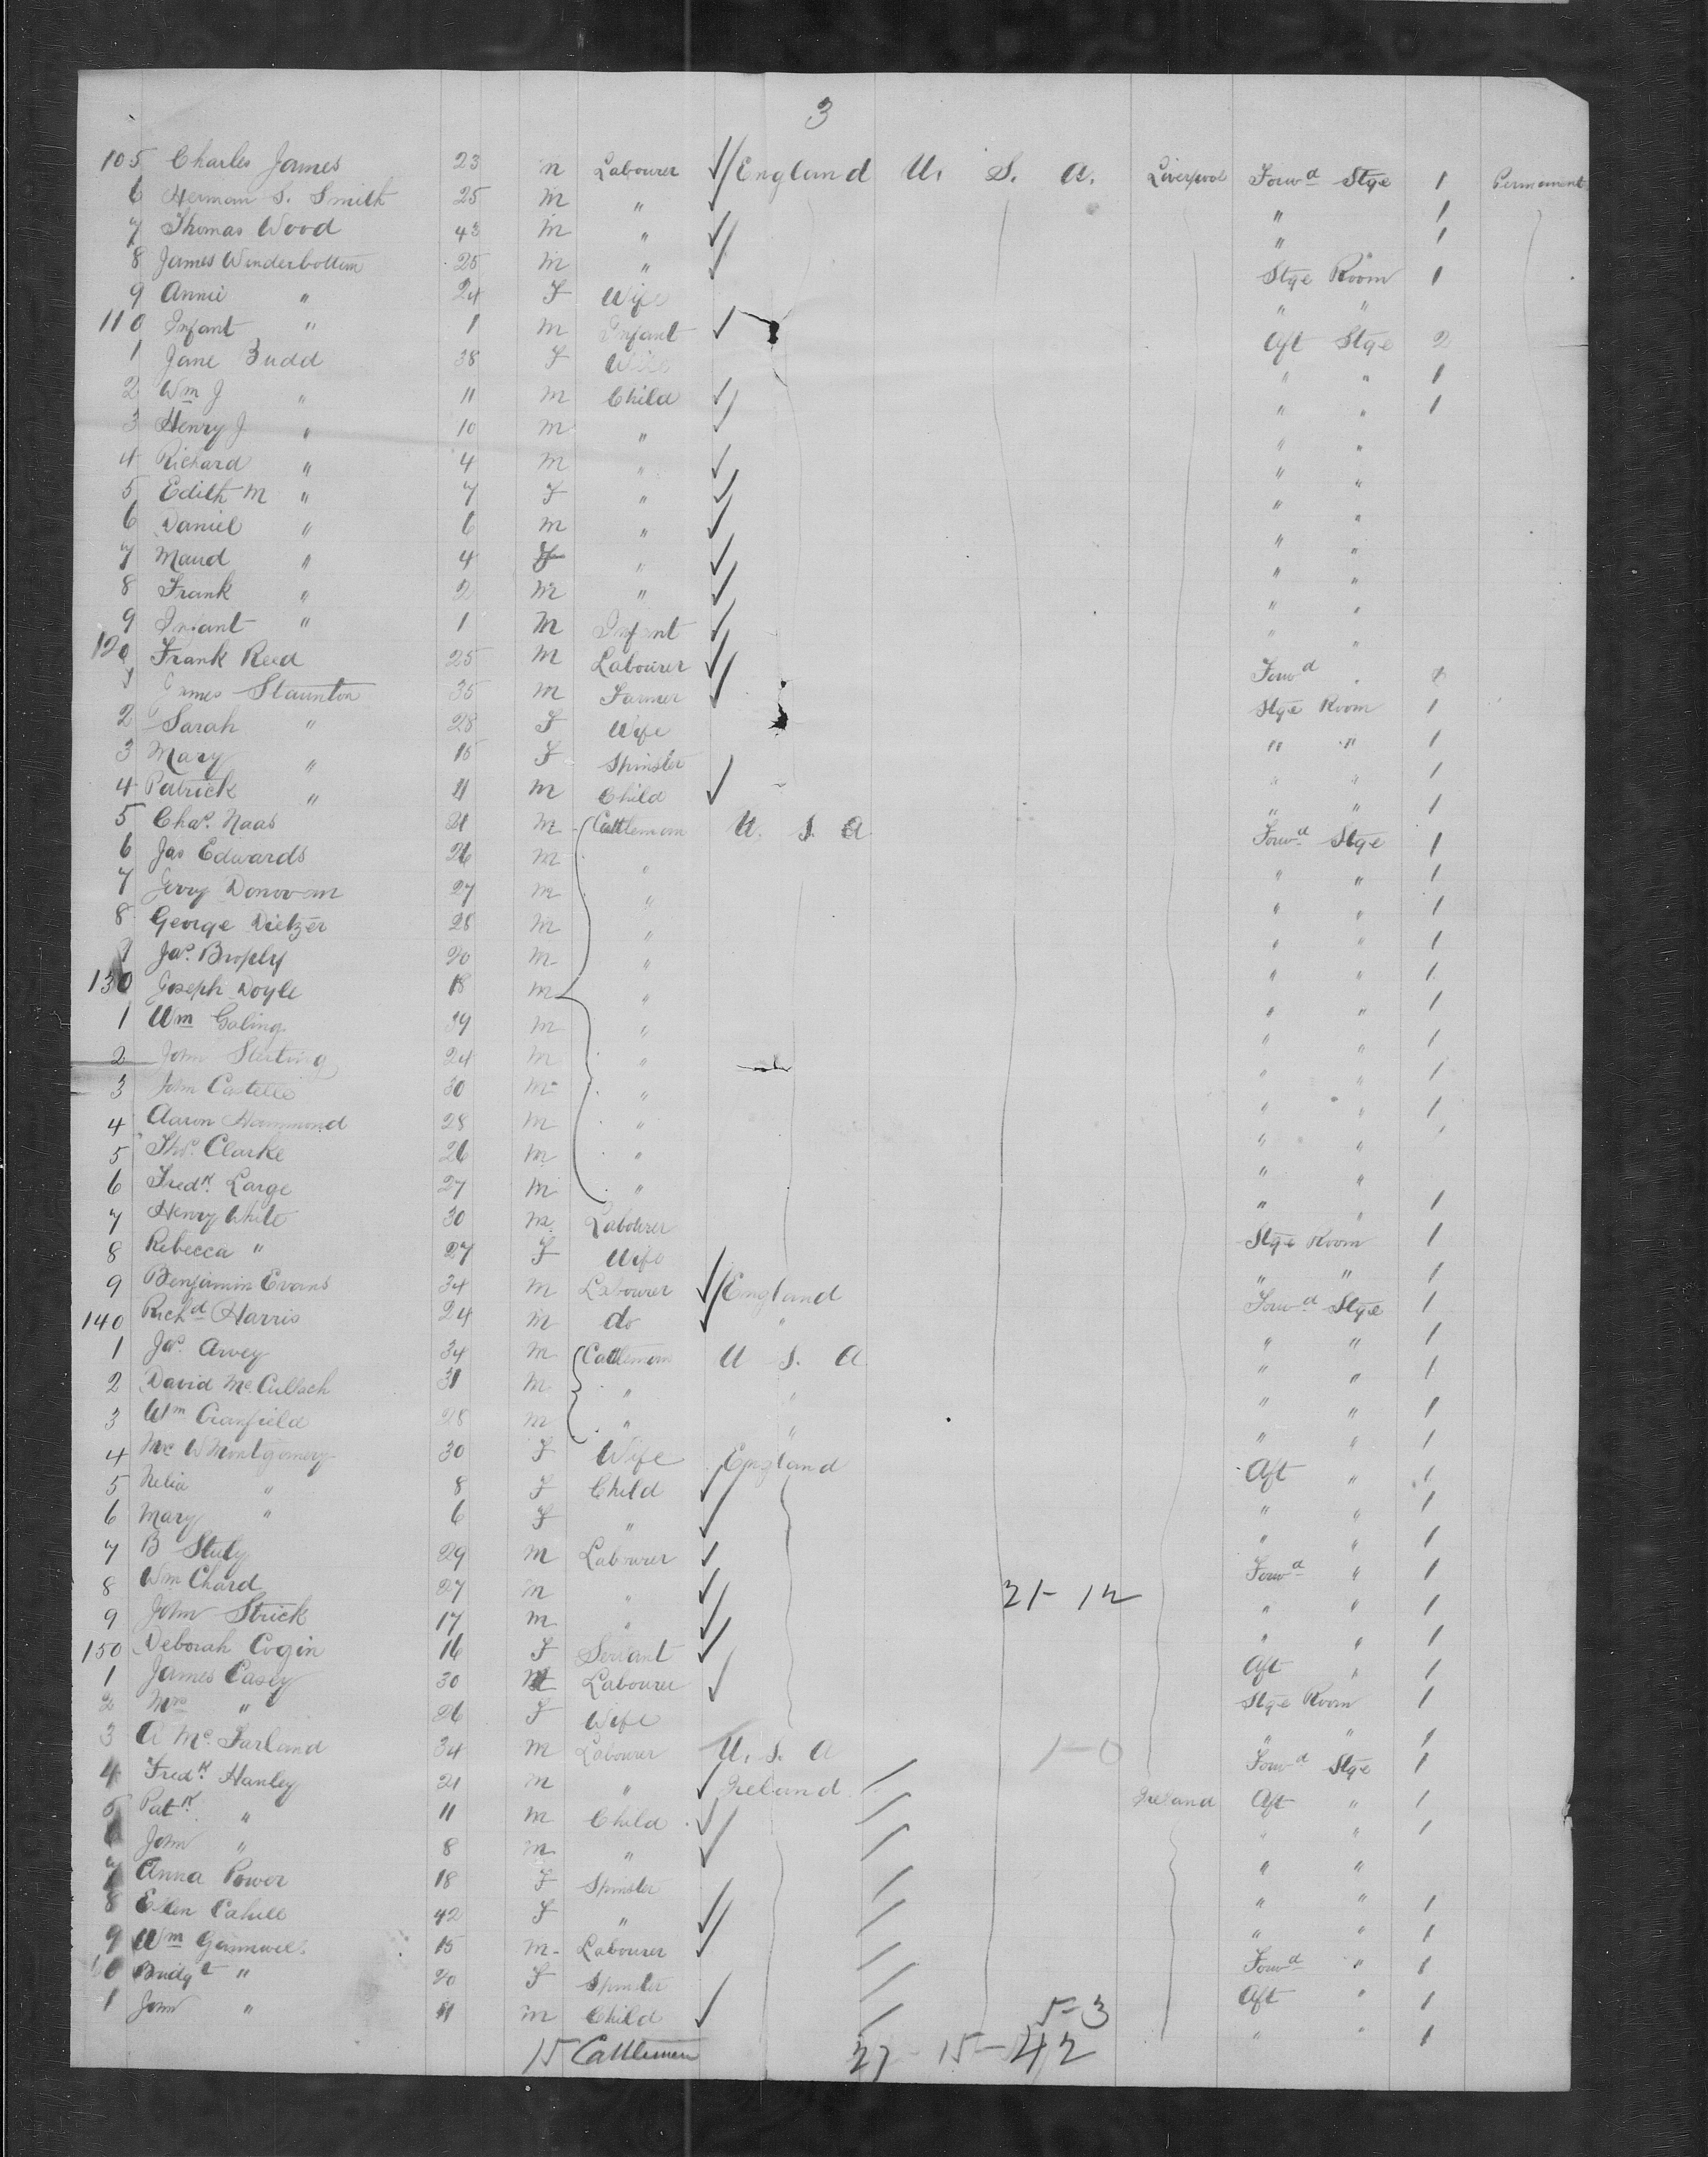 3
105 Charles James 23 m Labourer England U. S. A. Liverpool Forwd Stge 1 Permanent
6 Herman S. Smith 25 m " " 1
7 Thomas Wood 43 m " " 1
8 James Winderbottom 25 m " Stge Room 1
9 Annie " 24 F Wife " "
110 Infant " 1 m Infant Aft Stge 2
1 Jane Budd 38 F Wife " " 1
2 Wm J " 11 m Child " " 1
3 Henry J " 10 m " " "
4 Richard " 4 m " " "
5 Edith M " 7 F " " "
6 Daniel " 6 m " " "
7 Maud " 4 F " " "
8 Frank " 2 m " " "
9 Infant " 1 m Infant " "
120 Frank Reed 25 m Labourer Forwd "
1 James Staunton 35 m Farmer Stge Room 1
2 Sarah " 28 F Wife " " 1
3 Mary " 15 F Spinster " " 1
4 Patrick " 11 m Child " " 1
5 Chas. Naas 21 m Cattleman U. S. A Forwd Stge 1
6 Jas Edwards 26 m " " " 1
7 Jerry Donovan 27 m " " " 1
8 George Dietzer 28 m " " " 1
9 Jas. Brophy 20 m " " " 1
130 Joseph Doyle 18 m " " " 1
1 Wm Galing 39 m " " " 1
2 John 24 m " " " 1
3 John 30 m " " " 1
4 Aaron Hammond 28 m " " "
5 Thos. Clarke 26 m " " "
6 Fredk. Large 27 m " " " 1
7 Henry White 30 m Labourer Stge Room 1
8 Rebecca " 27 F Wife " " 1
9 Benjamin Evans 34 m Labourer England Forwd Stge 1
140 Richd Harris 24 m do " " " 1
1 Jas. Arvey 34 m Cattleman U S. A " " 1
2 David McCullach 31 m " " " " 1
3 Wm Cranfield 28 m " " " " 1
4 W Montgomery 30 F Wife England Aft " 1
5 Nelia " 8 F Child " " 1
6 Mary " 6 F " " " 1
7 B Stuly 29 m Labourer Forwd " 1
8 Wm Chard 27 m " 21-12 " " 1
9 John Strick 17 m " " " 1
150 Deborah Cogin 16 F Servant Aft " 1
1 James Casey 30 m Labourer Stge Room 1
2 Mrs " 26 F Wife " " 1
3 A McFarland 34 m Labourer U. S. A 1-0 Forwd Stge 1
4 Fredk. Hanley 21 m " Ireland Ireland Aft " 1
5 Patk. " 11 m Child " " 1
6 John " 8 m " " "
7 Anna Power 18 F Spinster " " 1
8 Ellen Cahill 42 F " " " 1
9 Wm 15 m Labourer Forwd " 1
60 Bridgt " 20 F Spinster Aft " 1
1 John " 11 m Child 5-3 " " 1
15 Cattlemen 27-15-42